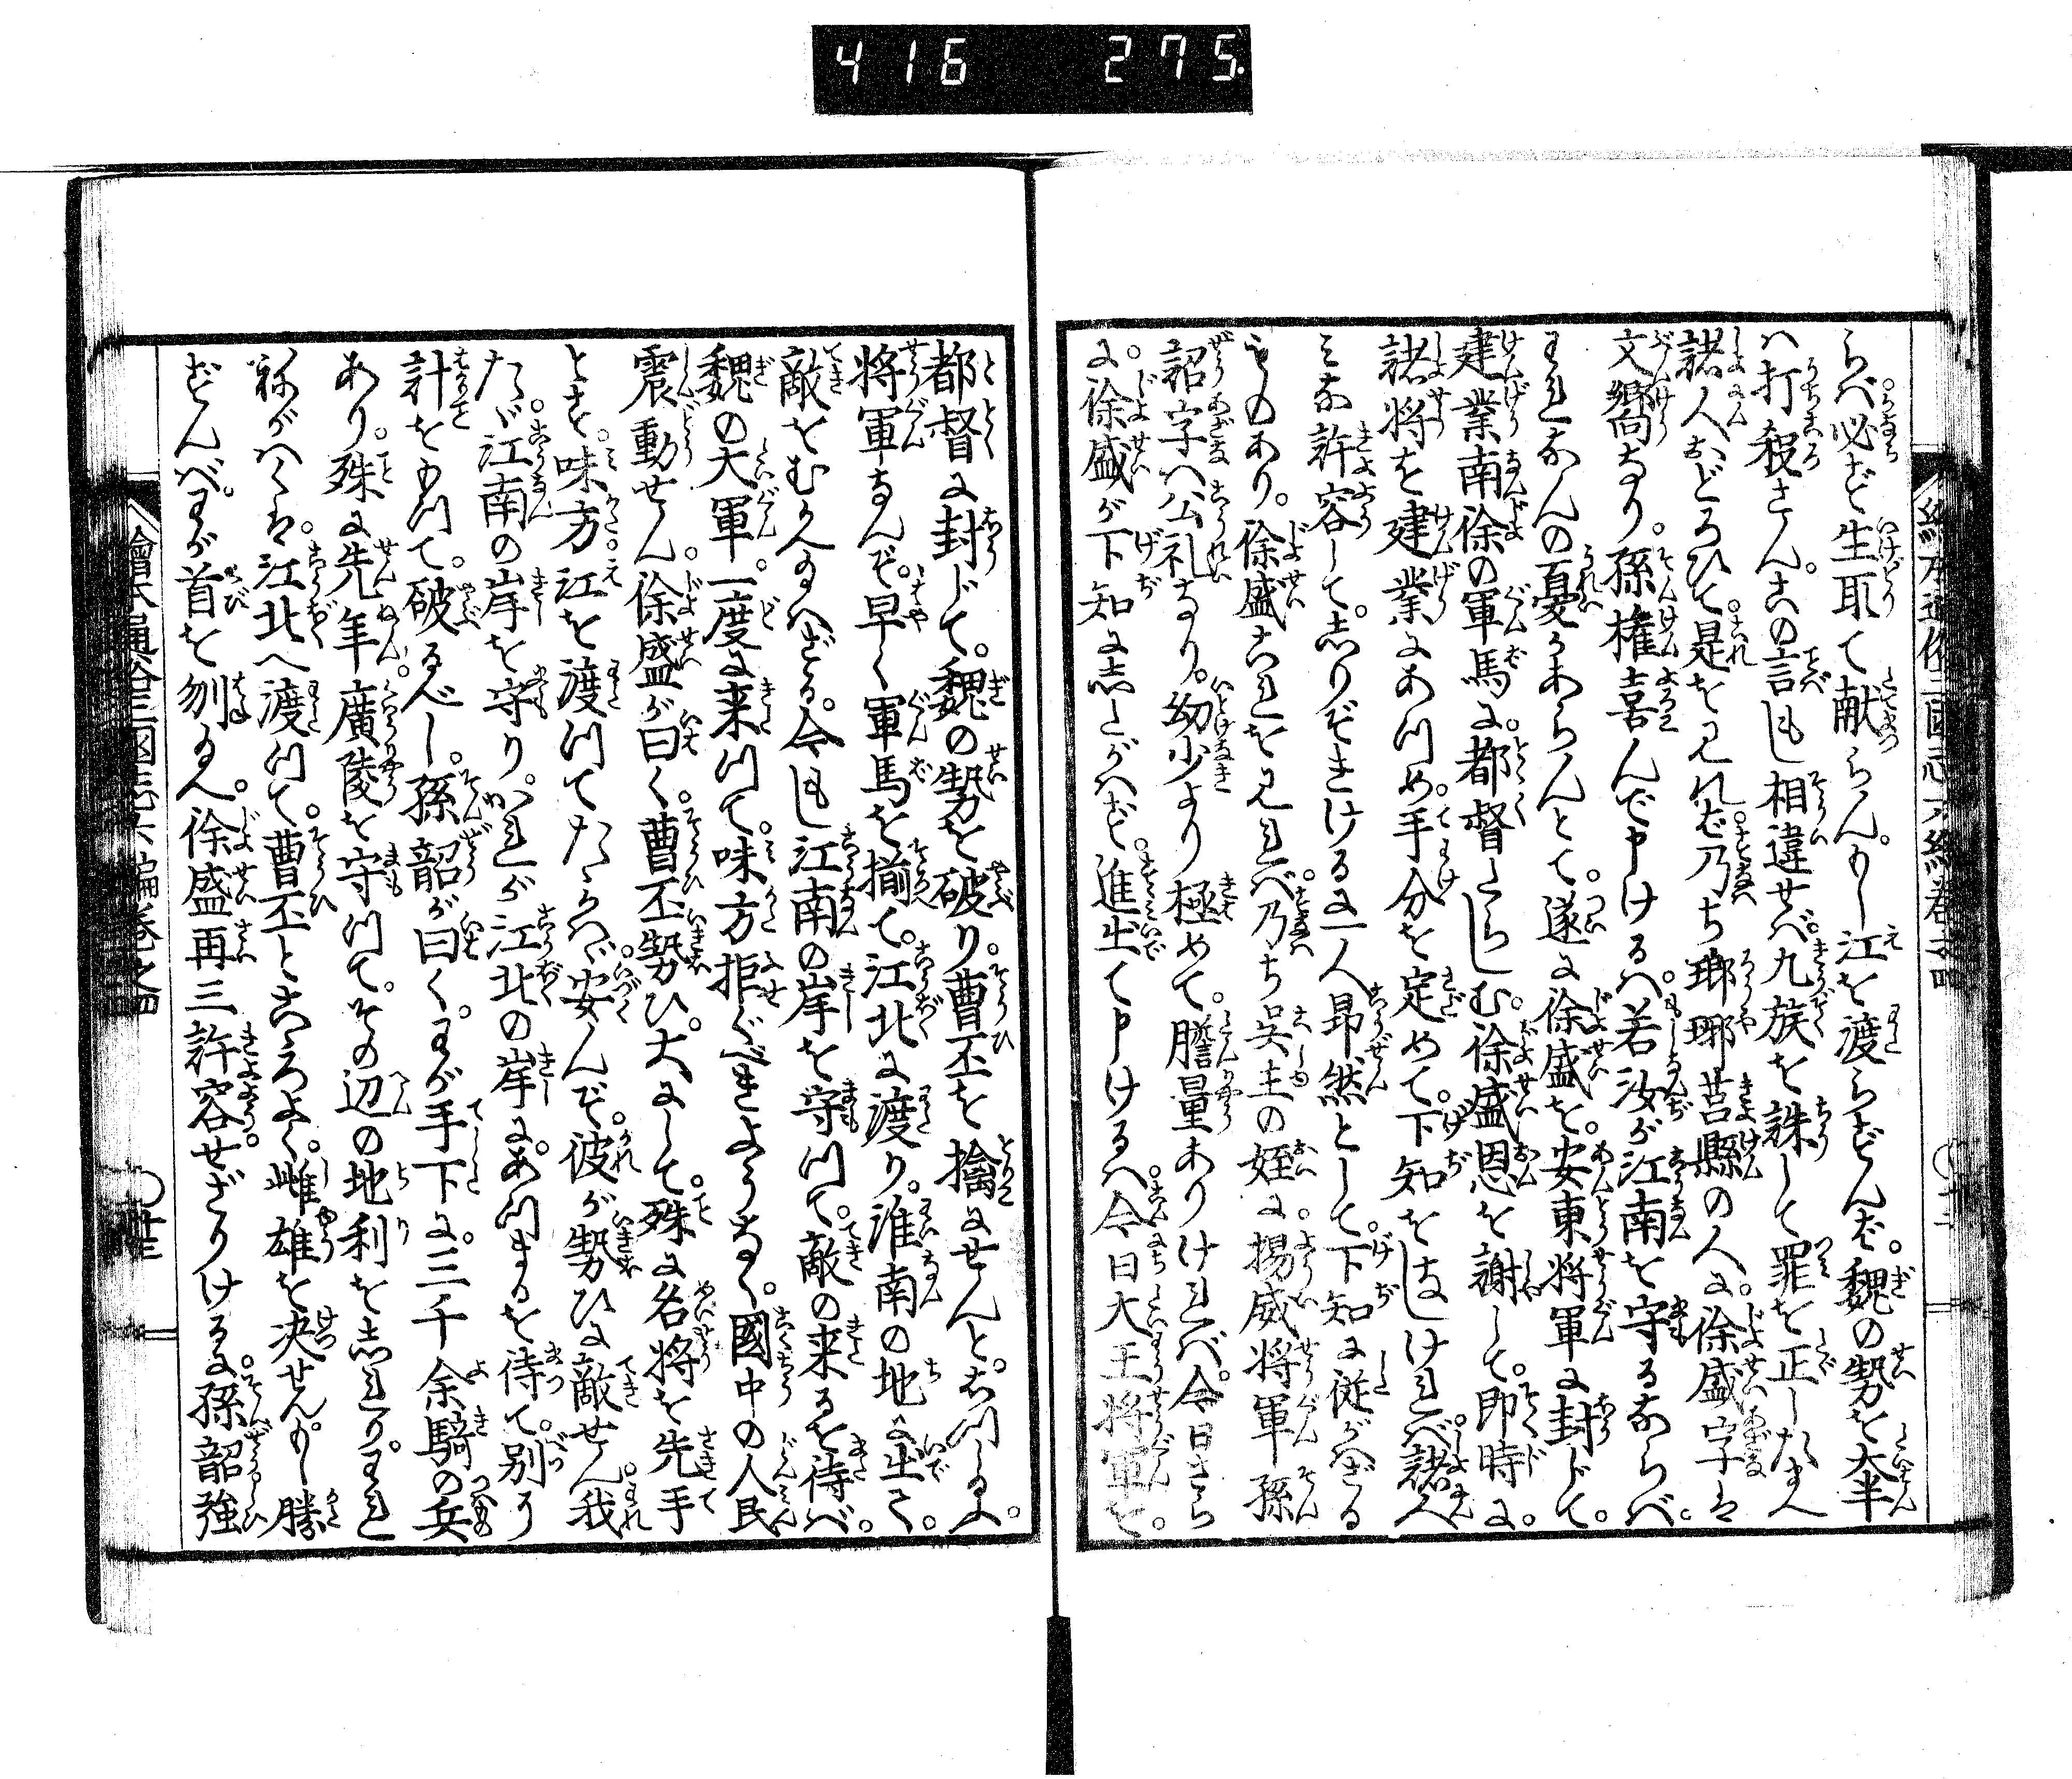 416 275
らべ必ず生取て献らん。もし江を渡らずんば。魏の勢を大半
ハ打殺さん。この言もし相違せバ。九族を誅して罪を正したまへ
諸人おどろひて。是を見れバ。乃ち瑯琊莒縣の人に。徐盛字は
文嚮なり。孫権喜んで申けるハ。若汝が江南を守るならバ。
われなんの憂かあらんとて。遂に徐盛を。安東将軍に封じて。
建業南徐の軍馬に。都督たらしむ。徐盛恩を謝して。即時に。
諸将を建業にあつめ。手分を定めて。下知をなしけれバ。諸人
ミな許容して。しりぞきけるに一人昂然として。下知に従がハざる
ものあり。徐盛これを見れバ。乃ち呉主の姪に。揚威将軍孫
韶字ハ公礼なり。幼少より極めて。膽量ありけれバ。今日さら
に。徐盛が下知にしたがハず。進出て申けるハ。今日大王将軍を。
都督に封じて。魏の勢を破り。曹丕を擒にせんと。おつしよ。
将軍なんぞ。早く軍馬を揃て。江北に渡り。淮南の地に出て。
敵をむかへ給ハざる。今もし江南の岸を守つて。敵の来るを待バ。
魏の大軍。一度に来つて。味方拒ぐべきようなく。國中の人民
震動せん。徐盛が曰く。曹丕勢ひ。大にして。殊に名将を先手
とす。味方。江を渡つてたゝかハゞ。安んぞ。彼が勢ひに敵せん。我
たゞ。江南の岸を守り。かれが江北の岸に。あつまるを待て。別の
計をもつて。破るべし。孫韶が曰く。わが手下に。三千余騎の兵
あり。殊に先年。廣陵を守つて。その辺の地利をしれり。われ
ねがハくは。江北へ渡つて。曹丕とこゝろよく。雌雄を决せん。もし勝
ずんバ。わが首を刎給へ。徐盛再三許容せざりけるに。孫韶強
繪本通俗三國志六編巻之四 〇廿三